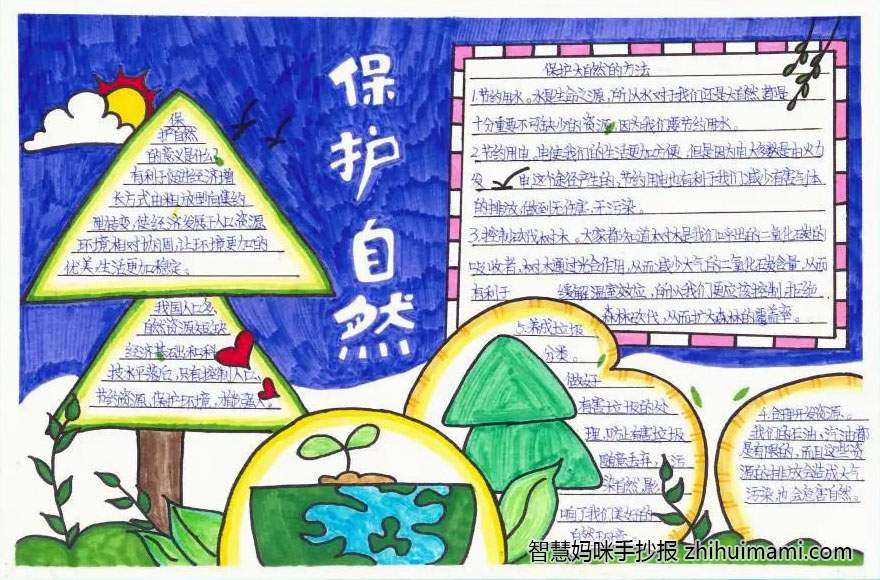 保护自然
保
护自然
的意义是什么?
有利于促进经济增
长方式由粗放型向集约
型转变,使经济发展于人口资源
环境相对协调,让环境更加的
优美,生活更加稳定。
我国人口多
自然资源短缺
经济基础和科
技水平落后,只有控制人口、
节约资源、保护环境,
保护大自然的方法
1.节约用水。水是生命之源,所以水对于我们还是大自然都是
十分重要不可缺少的资源,因为我们要节约用水。
2.节约用电,电使我们的生活更加方便,但是因为电大多数是由火力
发 电这个途径产生的,节约用电也有利于我们减少有害气体
的排放,做到无伤害,无污染。
3.控制砍伐树木。大家都知道树木是我们呼出的二氧化碳的
吸收者,树木通过光合作用,从而减少大气的二氧化碳含量,从而
有利于 缓解温室效应,所以我们更应该控制,拒绝
森林砍伐,从而扩大森林的覆盖率。
5.养成垃圾
分类。
做好
有害垃圾的处
理,防止有害垃圾
随意丢弃,污
染自然,影
响了我们美好的
自然环境
4.合理开发资源。
我们的石油、汽油都
是有限的,而且这些资
源的排放会造成大气
污染,也会危害自然。
智慧妈咪手抄报 zhihuimami.com